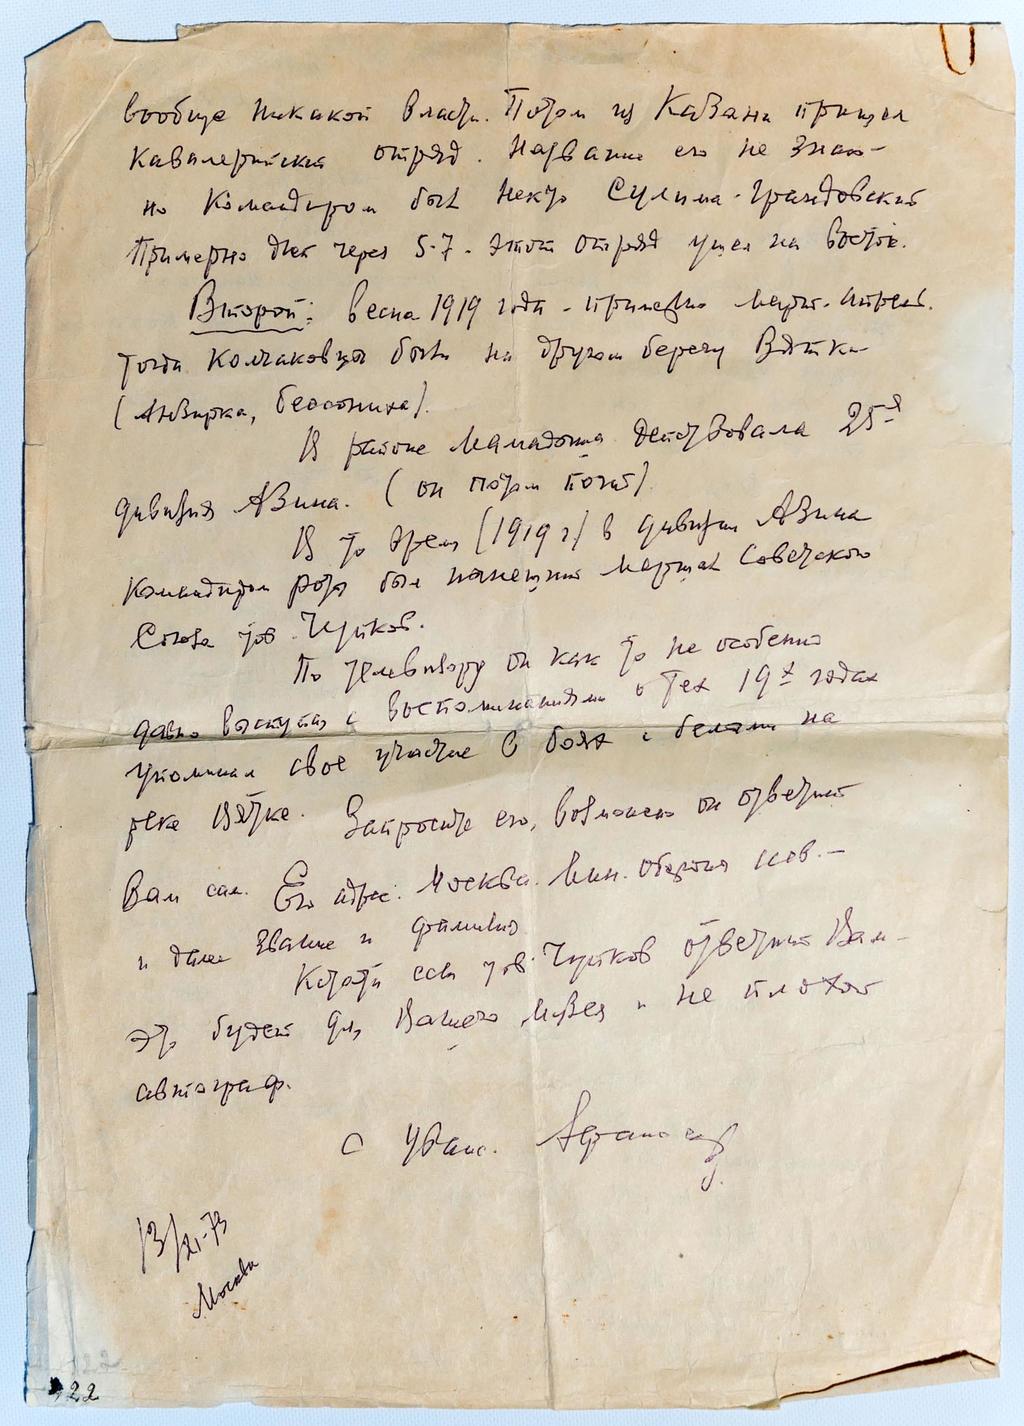 вообще никакой власти. Потом из Казани пришел
Кавалерийский отряд. Название его не знаю -
но Командиром был некто Сулима-Грандовский
Примерно дней через 5-7 - этот отряд ушел на восток.
Второй: весна 1919 года - примерно март-апрель.
тогда Колчаковцы были на другом берегу Вятки
(                 ).
В районе Мамадыша действовала 25-я
дивизия Азина. (он потом погиб).
В то время (1919 г) в дивизии Азина
Командиром роты был нынешний маршал Советского
Союза тов. Чуйков.
По телевизору он как то не особенно
давно выступал с воспоминаниями о тех 19х годах
упоминал свое участие в боях с белыми на
реке Вятке. Запросите его, возможно он ответит
Вам сам. Его адрес: Москва. Мин. обороны
и далее звание и фамилию
Кстати если тов. Чуйков ответит Вам -
это будет для Вашего Музея и не плохой
автограф.
С уваж.
Москва
22